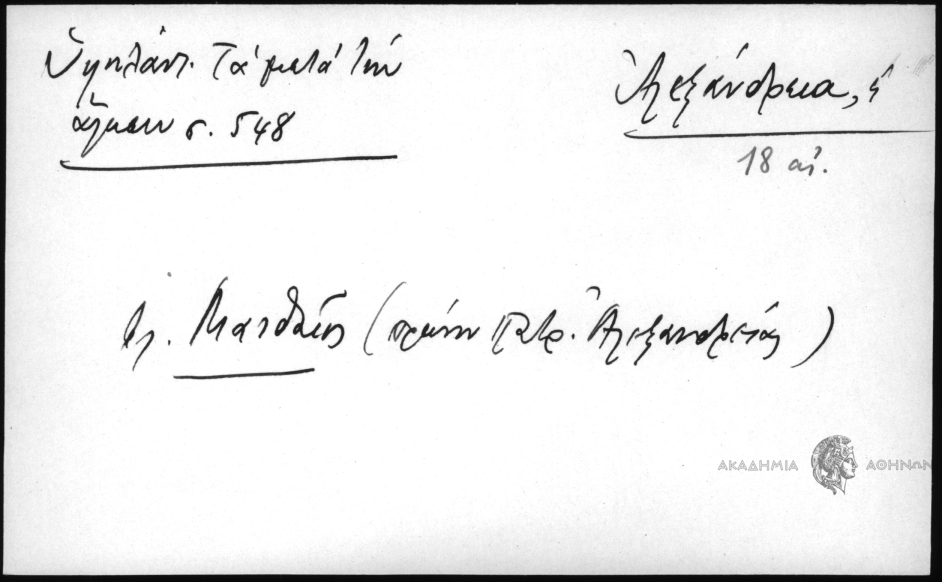 Ὑψηλάντ. Τὰ μετὰ τὴν
ἅλωσιν σ. 548
Ἀλεξάνδρεια, ἡ
18 αἰ.
Ματθαῖος (πρώην Πατρ. Ἀλεξανδρείας)
ΑΚΑΔΗΜΙΑ ΑΘΗΝΩΝ